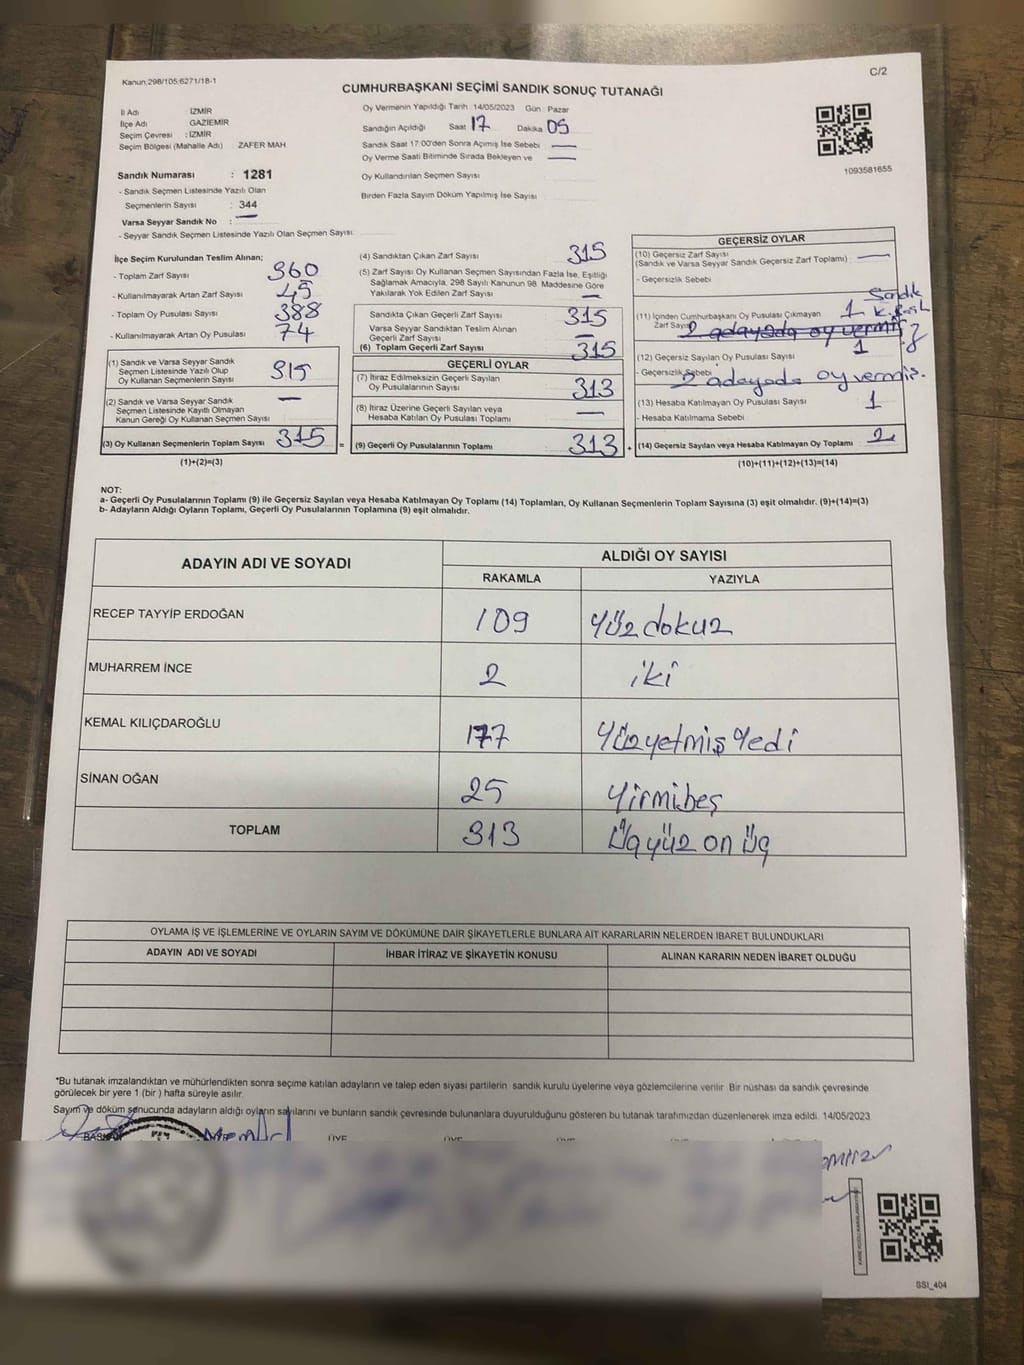 Kanun:298/105;6271/18-1
C/2
CUMHURBAŞKANI SEÇİMİ SANDIK SONUÇ TUTANAĞI
İl Adı İZMİR
İlçe Adı GAZİEMİR
Seçim Çevresi : İZMİR
Seçim Bölgesi (Mahalle Adı) : ZAFER MAH.
Sandık Numarası : 1281
- Sandık Seçmen Listesinde Yazılı Olan
Seçmenlerin Sayısı : 344
Varsa Seyyar Sandık No :
- Seyyar Sandık Seçmen Listesinde Yazılı Olan Seçmen Sayısı
Oy Vermenin Yapıldığı Tarih :14/05/2023 Gün : Pazar
Sandığın Açıldığı Saat 17 Dakika 05
Sandık Saat 17:00'den Sonra Açımış İse Sebebi —
Oy Verme Saati Bitiminde Sırada Bekleyen ve —
Oy Kullandırılan Seçmen Sayısı
Birden Fazla Sayım Döküm Yapılmış İse Sayısı
1093581655
İlçe Seçim Kurulundan Teslim Alınan;
- Toplam Zarf Sayısı 360
- Kullanılmayarak Artan Zarf Sayısı 45
- Toplam Oy Pusulası Sayısı 388
- Kullanılmayarak Artan Oy Pusulası 74
(1) Sandık ve Varsa Seyyar Sandık
Seçmen Listesinde Yazılı Olup
Oy Kullanan Seçmenlerin Sayısı 315
(2) Sandık ve Varsa Seyyar Sandık
Seçmen Listesinde Kayıtlı Olmayan
Kanun Gereği Oy Kullanan Seçmen Sayısı —
(3) Oy Kullanan Seçmenlerin Toplam Sayısı 315 =
(1)+(2)=(3)
(4) Sandıktan Çıkan Zarf Sayısı 315
(5) Zarf Sayısı Oy Kullanan Seçmen Sayısından Fazla İse, Eşitliği
Sağlamak Amacıyla, 298 Sayılı Kanunun 98. Maddesine Göre
Yakılarak Yok Edilen Zarf Sayısı —
Sandıkta Çıkan Geçerli Zarf Sayısı 315
Varsa Seyyar Sandıktan Teslim Alınan
Geçerli Zarf Sayısı —
(6) Toplam Geçerli Zarf Sayısı 315
GEÇERLİ OYLAR
(7) İtiraz Edilmeksizin Geçerli Sayılan
Oy Pusulalarının Sayısı 313
(8) İtiraz Üzerine Geçerli Sayılan veya
Hesaba Katılan Oy Pusulası Toplamı —
(9) Geçerli Oy Pusulalarının Toplamı 313 +
GEÇERSİZ OYLAR
(10) Geçersiz Zarf Sayısı
(Sandık ve Varsa Seyyar Sandık Geçersiz Zarf Toplamı) —
- Geçersizlik Sebebi
Sandık
(11) İçinden Cumhurbaşkanı Oy Pusulası Çıkmayan 1
Zarf Sayısı 2 adayada oy vermiş
(12) Geçersiz Sayılan Oy Pusulası Sayısı 1
- Geçersizlik Sebebi 2 adayada oy vermiş.
(13) Hesaba Katılmayan Oy Pusulası Sayısı 1
- Hesaba Katılmama Sebebi
(14) Geçersiz Sayılan veya Hesaba Katılmayan Oy Toplamı 2
(10)+(11)+(12)+(13)=(14)
NOT:
a- Geçerli Oy Pusulalarının Toplamı (9) ile Geçersiz Sayılan veya Hesaba Katılmayan Oy Toplamı (14) Toplamları, Oy Kullanan Seçmenlerin Toplam Sayısına (3) eşit olmalıdır. (9)+(14)=(3)
b- Adayların Aldığı Oyların Toplamı, Geçerli Oy Pusulalarının Toplamına (9) eşit olmalıdır.
ADAYIN ADI VE SOYADI ALDIĞI OY SAYISI
RAKAMLA YAZIYLA
RECEP TAYYİP ERDOĞAN 109 yüz dokuz
MUHARREM İNCE 2 iki
KEMAL KILIÇDAROĞLU 177 Yüzyetmiş Yedi
SİNAN OĞAN 25 Yirmibeş
TOPLAM 313 Üçyüz on üç
OYLAMA İŞ VE İŞLEMLERİNE VE OYLARIN SAYIM VE DÖKÜMÜNE DAİR ŞİKAYETLERLE BUNLARA AİT KARARLARIN NELERDEN İBARET BULUNDUKLARI
ADAYIN ADI VE SOYADI İHBAR İTİRAZ VE ŞİKAYETİN KONUSU ALINAN KARARIN NEDEN İBARET OLDUĞU
*Bu tutanak imzalandıktan ve mühürlendikten sonra seçime katılan adayların ve talep eden siyasi partilerin sandık kurulu üyelerine veya gözlemcilerine verilir. Bir nüshası da sandık çevresinde
görülecek bir yere 1 (bir ) hafta süreyle asılır.
Sayım ve döküm sonucunda adayların aldığı oyların sayılarını ve bunların sandık çevresinde bulunanlara duyurulduğunu gösteren bu tutanak tarafımızdan düzenlenerek imza edildi. 14/05/2023
BAŞKAN ÜYE
SSI_404